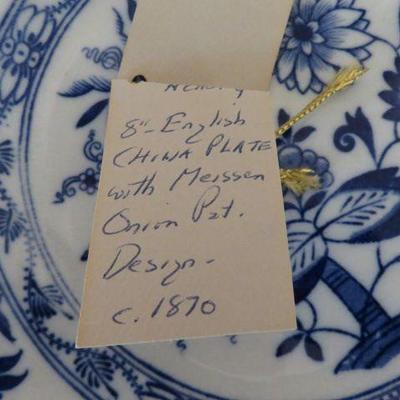 8" English
CHINA PLATE
with Meissen
Onion Pat.
Design -
c. 1870